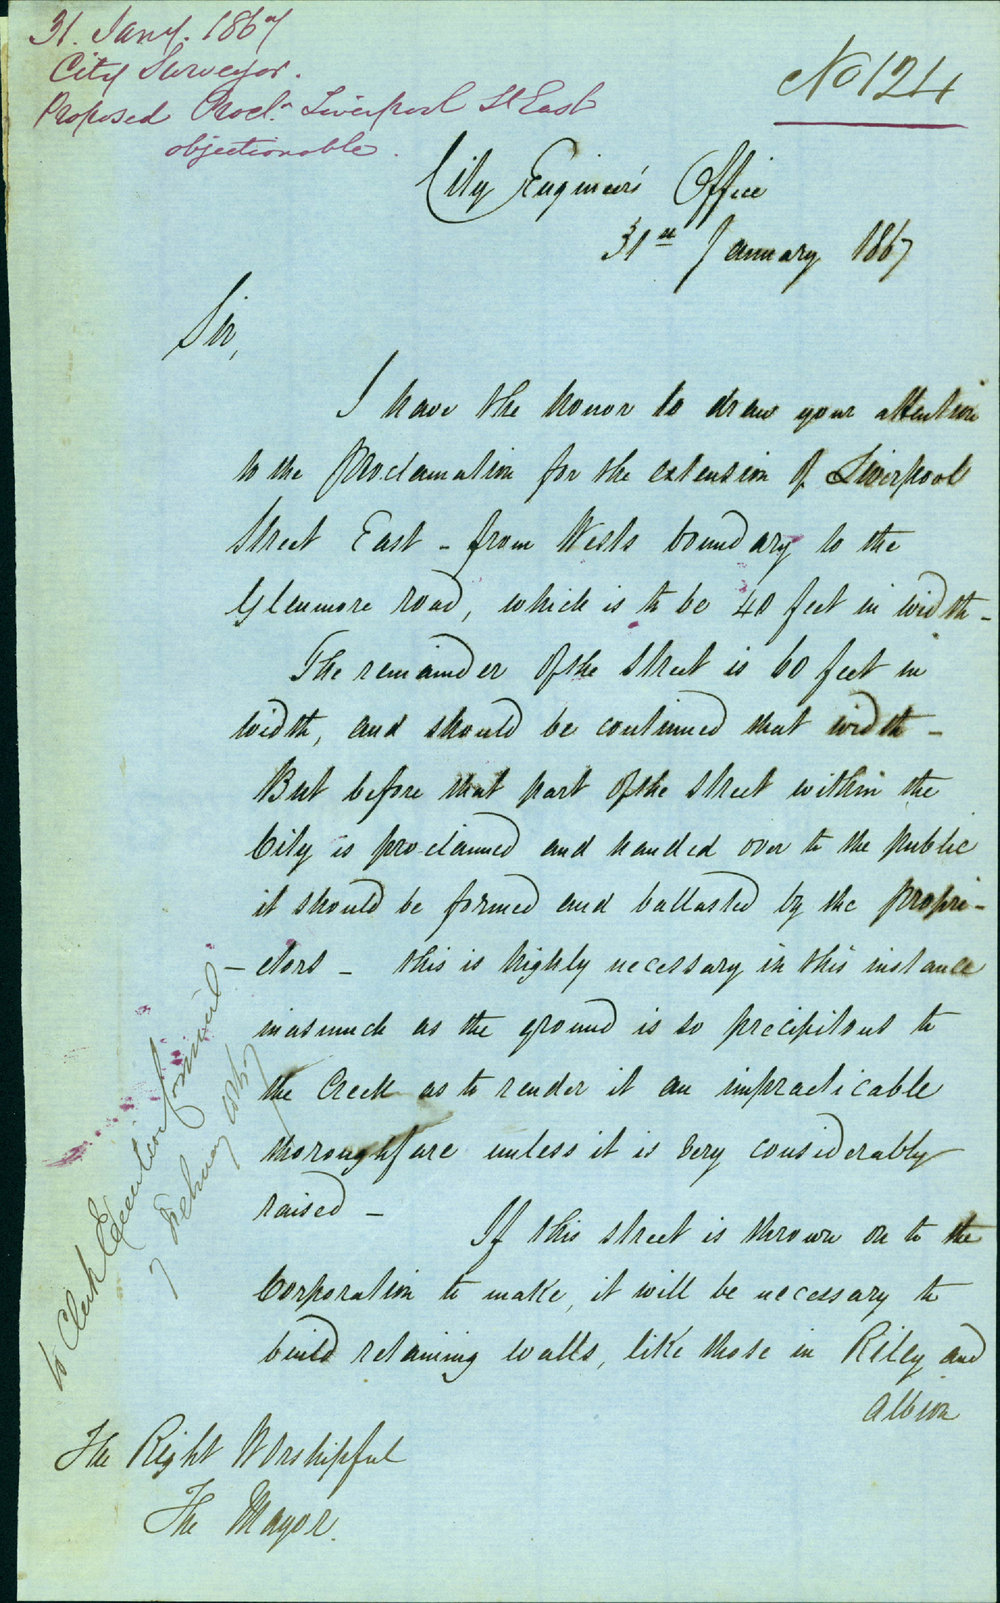 31. Jany. 1867
City Surveyor.
Proposed Procln. Liverpool St East
objectionable.
No 124
City Engineers' Office
31st January 1867
Sir,
I have the honor to draw your attention
to the proclamation for the extension of Liverpool
Street East - from Wests boundary to the
Glenmore road, which is to be 40 feet in width -
The remainder of the street is 60 feet in
width, and should be continued that width -
But before that part of the street within the
City is proclaimed and handed over to the public
it should be formed and ballasted by the propri-
- etors - this is highly necessary in this instance
inasmuch as the ground is so precipitous to
the Creek as to render it an impracticable
thoroughfare unless it is very considerably
raised -
If this street is thrown on to the
Corporation to make, it will be necessary to
build retaining walls, like those in Riley and
Albion
The Right Worshipful
The Mayor.
to Clerk Execution Council
7 February 1867